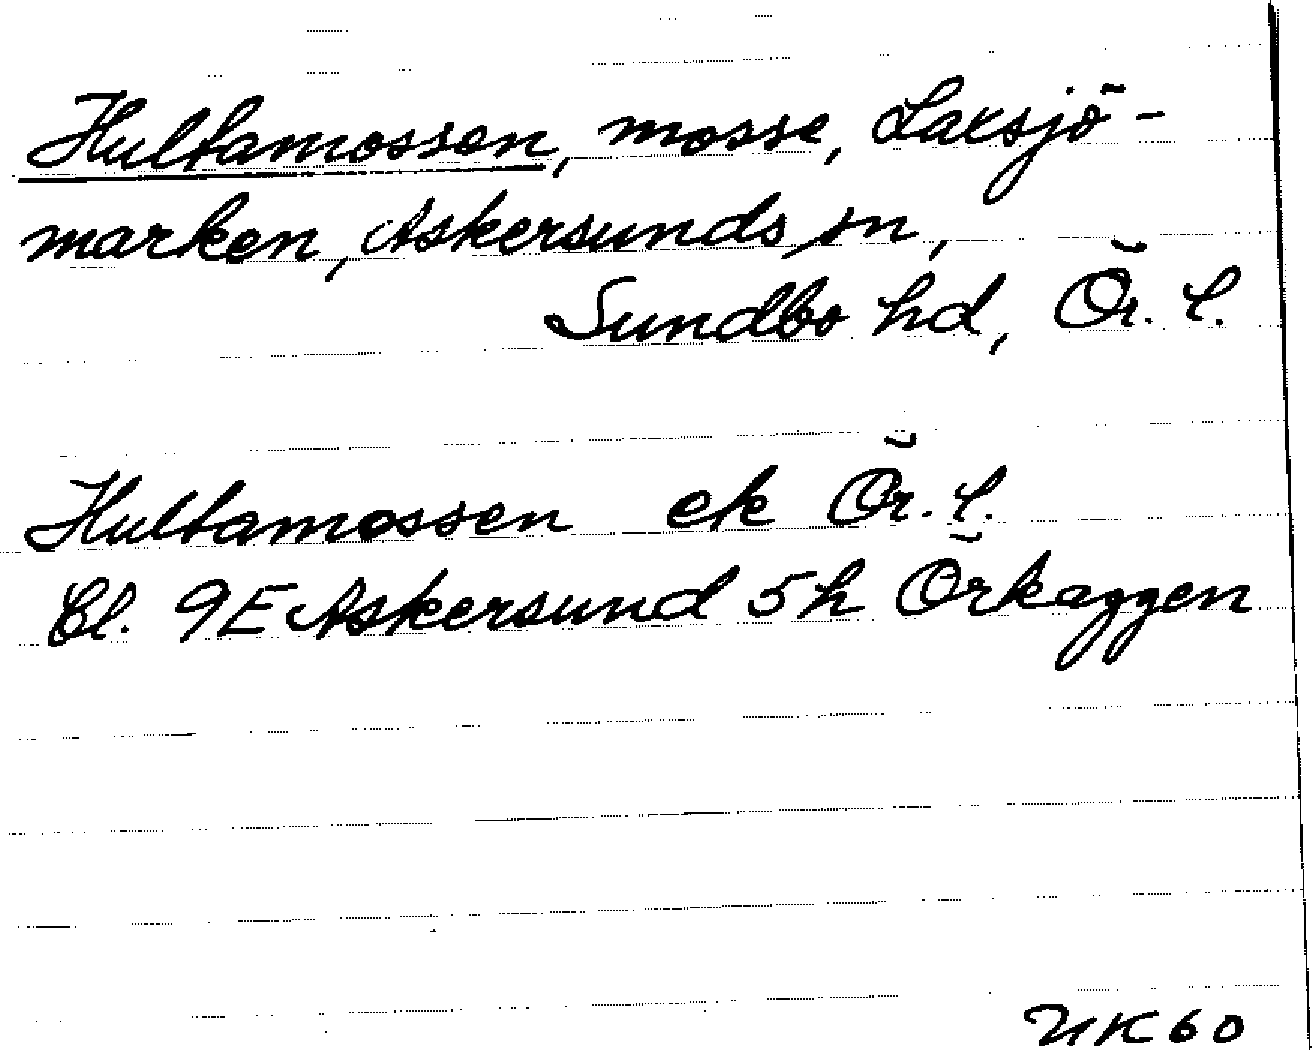 Hultamossen, mosse, Laxsjö-
marken, Askersunds sn,
Sundbo hd, Ör. l.
Hultamossen ek Ör. l.
Bl. 9E Askersund 5h Örkaggen
UK60